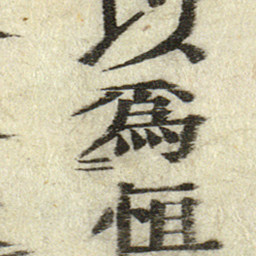 以爲恒